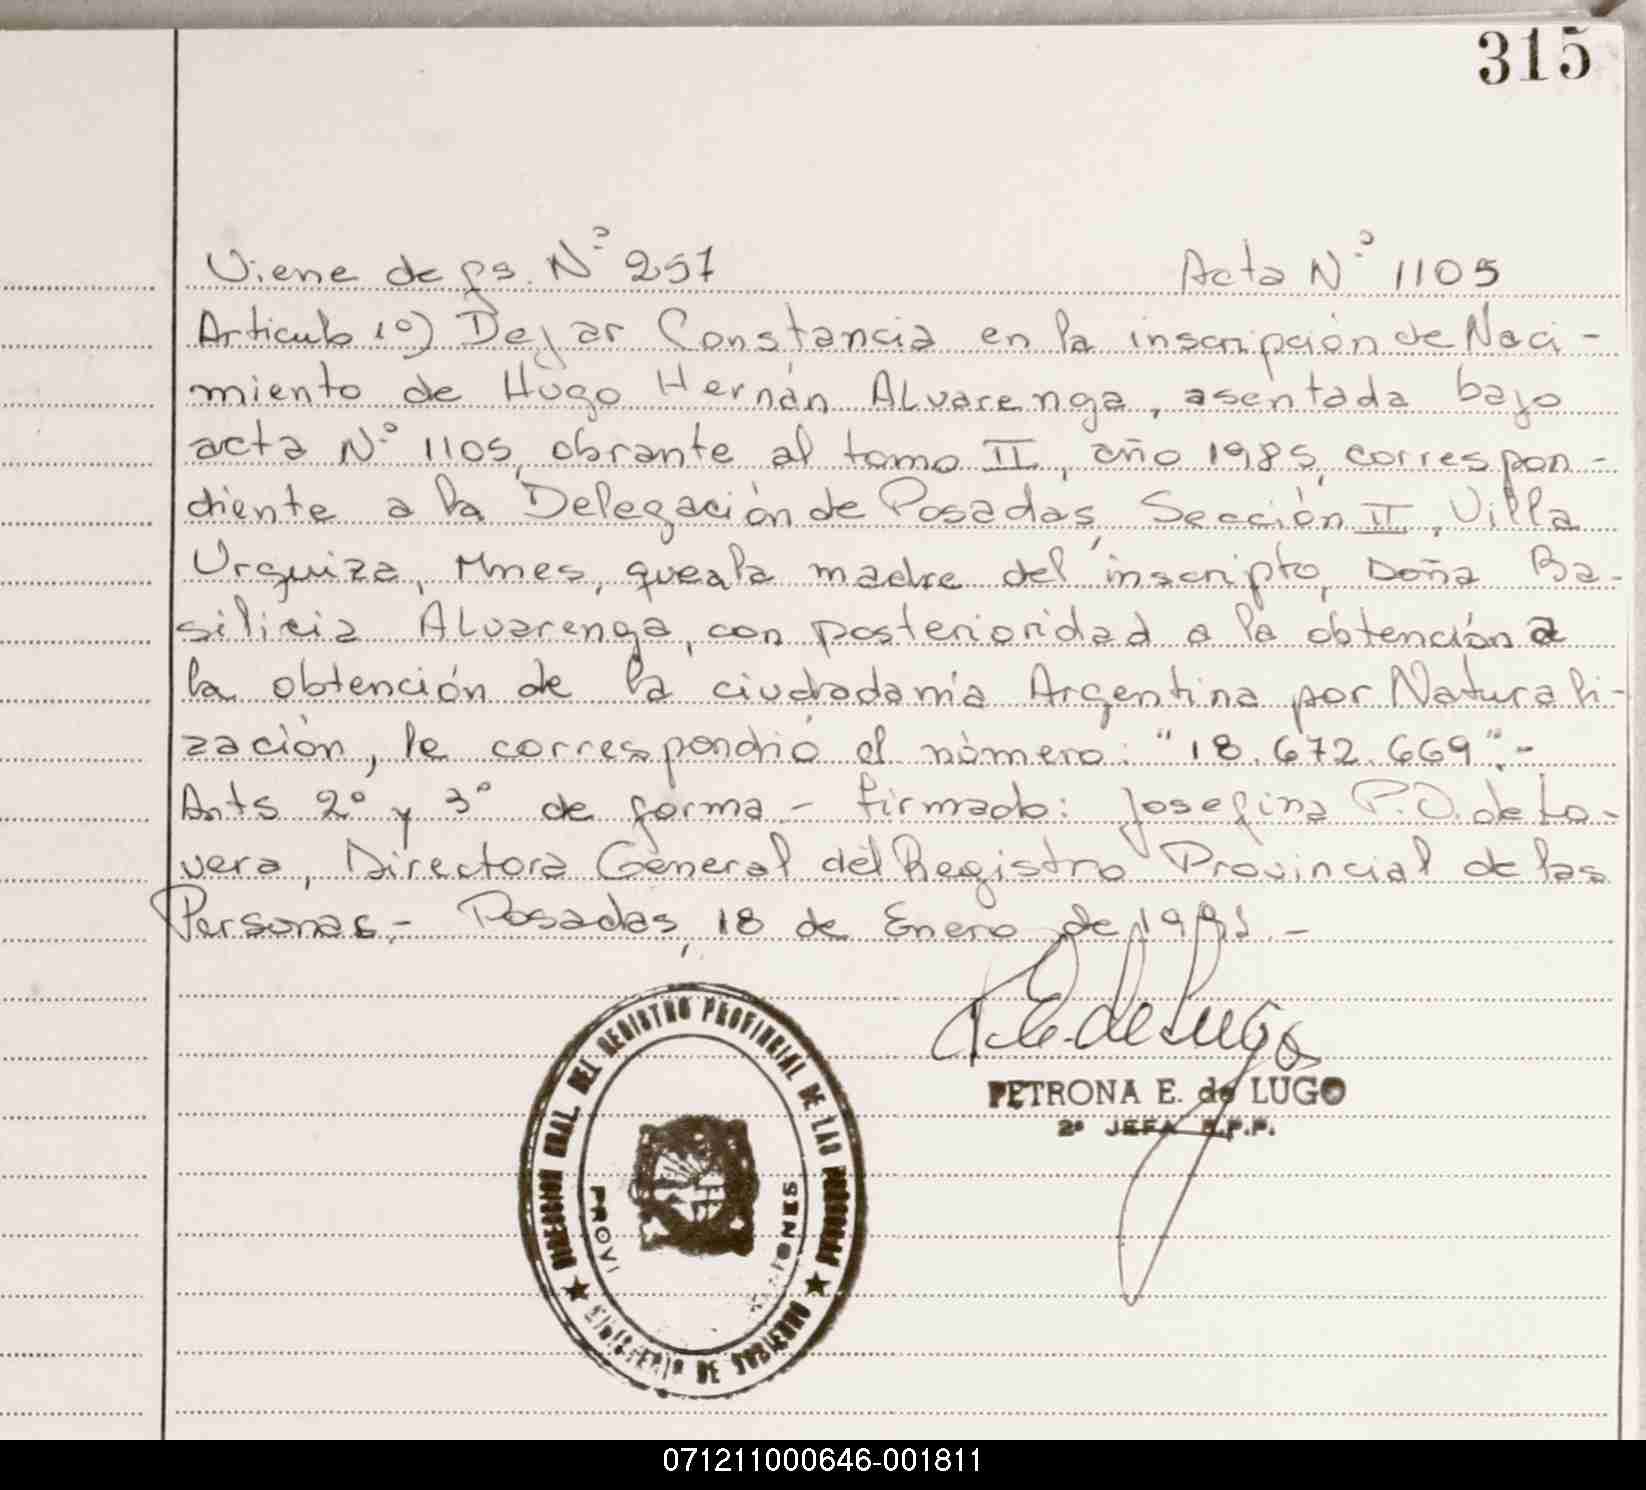 315
Viene de fs. Nº 257 Acta Nº 1105
Articulo 1º) Dejar Constancia en la inscripción de Naci-
miento de Hugo Hernán Alvarenga, asentada bajo
acta Nº 1105, obrante al tomo II, año 1985, correspon-
diente a la Delegación de Posadas, Sección II, Villa
Urquiza, Mnes, que a la madre del inscripto, Doña Ba-
silicia Alvarenga, con posterioridad a la obtención a
la obtención de la ciudadanía Argentina por Naturali-
zación, le correspondió el número: "18.672.669".-
Arts 2º y 3º de forma.- firmado: Josefina P.O. de Lo-
vera, Directora General del Registro Provincial de las
Personas.- Posadas, 18 de Enero de 1991.-
P.E. de Lugo
PETRONA E. de LUGO
2º JEFA R.P.P.
DIRECCION GRAL. DEL REGISTRO PROVINCIAL DE LAS PERSONAS
PROVI
IONES
MINISTERIO DE GOBIERNO
071211000646-001811